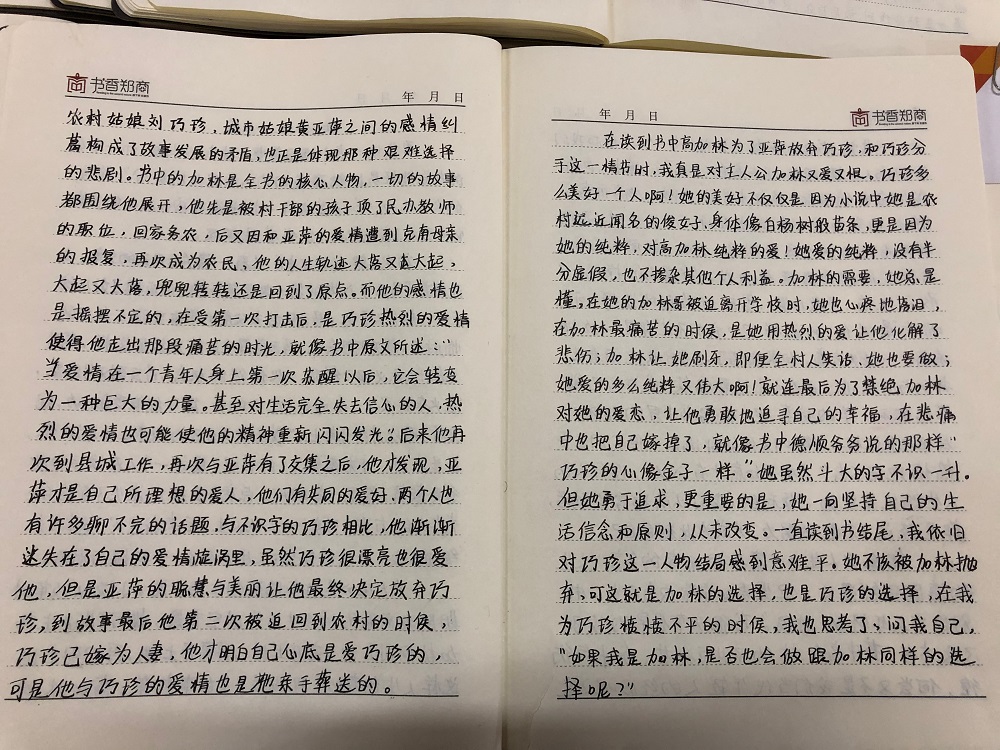 书香郑商
年 月 日
农村姑娘刘巧珍，城市姑娘黄亚萍之间的感情纠
葛构成了故事发展的矛盾，也正是体现那种艰难选择
的悲剧。书中的加林是全书的核心人物，一切的故事
都围绕他展开，他先是被村干部的孩子顶了民办教师
的职位，回家务农，后又因和亚萍的爱情遭到克南母亲
的报复，再次成为农民、他的人生轨迹大落又大起，
大起又大落，兜兜转转还是回到了原点。而他的感情也
是摇摆不定的，在受第一次打击后，是巧珍热烈的爱情
使得他走出那段痛苦的时光，就像书中原文所述："
当爱情在一个青年人身上第一次苏醒以后，它会转变
为一种巨大的力量。甚至对生活完全失去信心的人，热
烈的爱情也可能使他的精神重新闪闪发光"。后来他再
次到县城工作，再次与亚萍有了交集之后，他才发现，亚
萍才是自己所理想的爱人，他们有共同的爱好，两个人也
有许多聊不完的话题，与不识字的巧珍相比，他渐渐
迷失在了自己的爱情旋涡里，虽然巧珍很漂亮也很爱
他，但是亚萍的聪慧与美丽让他最终决定放弃巧
珍，到故事最后他第二次被迫回到农村的时候，
巧珍已嫁为人妻，他才明白自己心底是爱巧珍的，
可是他与巧珍的爱情也是他亲手葬送的。
年 月 日
书香郑商
在读到书中高加林为了亚萍放弃巧珍，和巧珍分
手这一情节时，我真是对主人公加林又爱又恨。巧珍多
么美好一个人啊！她的美好不仅仅是因为小说中她是农
村远近闻名的俊女子，身体像白杨树般苗条，更是因为
她的纯粹，对高加林纯粹的爱！她爱的纯粹，没有半
分虚假，也不掺杂其他个人利益。加林的需要，她总是
懂。在她的加林哥被迫离开学校时，她也心疼地落泪，
在加林最痛苦的时候，是她用热烈的爱让他化解了
悲伤；加林让她刷牙，即便全村人笑话、她也要做；
她爱的多么纯粹又伟大啊！就连最后为了禁绝加林
对她的爱恋，让他勇敢地追寻自己的幸福，在悲痛
中也把自己嫁掉了，就像书中德顺爷爷说的那样"
巧珍的心像金子一样"。她虽然斗大的字不识一升。
但她勇于追求，更重要的是，她一向坚持自己的生
活信念和原则，从未改变。一直读到书结尾，我依旧
对巧珍这一人物结局感到意难平。她不该被加林抛
弃、可这就是加林的选择，也是巧珍的选择，在我
为巧珍愤愤不平的时候，我也思考了、问我自己，
"如果我是加林，是否也会做跟加林同样的选
择呢？"